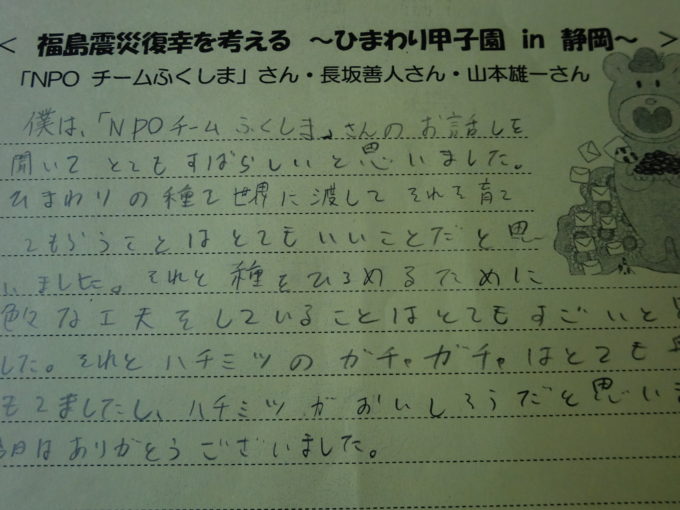 ＜ 福島震災復幸を考える ～ひまわり甲子園 in 静岡～ ＞
「NPO チームふくしま」さん・長坂善人さん・山本雄一さん
僕は、「NPOチームふくしま」さんのお話しを
聞いてとてもすばらしいと思いました。
ひまわりの種を世界に渡してそれを育て
てもらうことはとてもいいことだと思
いました。それと種をひろめるために
色々な工夫をしていることはとてもすごいと
した。それとハチミツのガチャガチャはとても
もてましたし、ハチミツがおいしそうだと思いま
今日はありがとうございました。